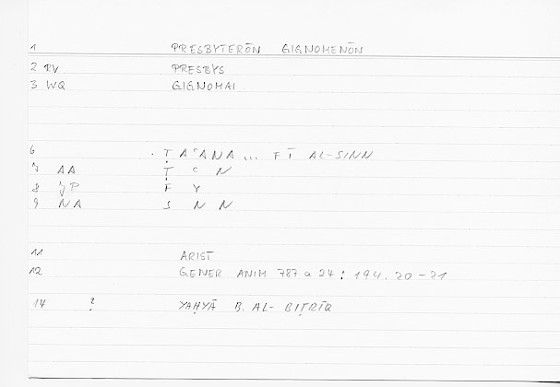 1 PRESBYTERŌN GIGNOMENŌN
2 RV PRESBYS
3 WQ GIGNOMAI
6 ṬAʿANA ... FĪ AL-SINN
7 AA Ṭ ʿ N
8 JP F Y
9 NA S N N
11 ARIST
12 GENER ANIM 787 a 24 : 194.20-21
14 ? YAḤYĀ B. AL-BIṬRĪQ